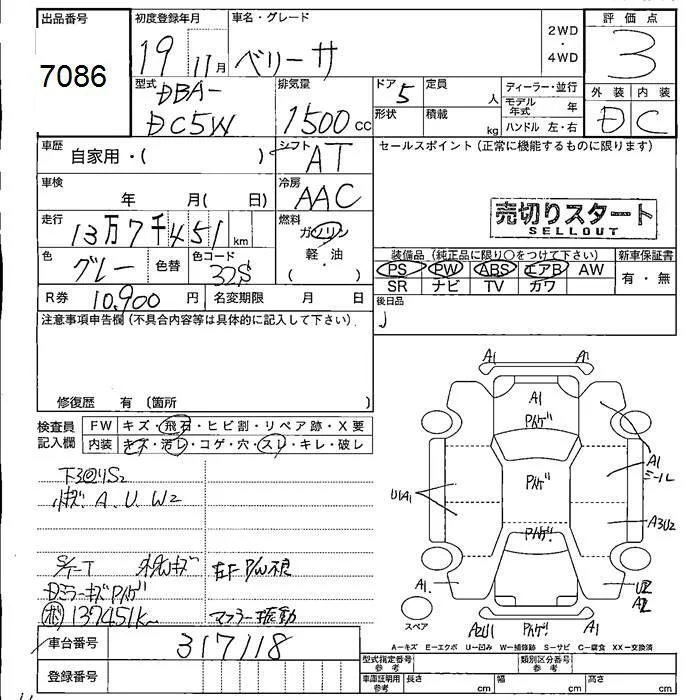 出品番号
7086
初度登録年月
19 11月
車名・グレード
ベリーサ
2WD
・
4WD
評価点
3
外装 内装
D C
型式
DBA-
DC5W
排気量
1500 cc
ドア
5
定員
人
形状
積載
kg
ディーラー・並行
モデル年式 年
ハンドル 左・右
車歴
自家用・( )
シフト
AT
セールスポイント(正常に機能するものに限ります)
車検
年 月( 日)
冷房
AAC
売切りスタート
SELLOUT
走行
13万7千451km
燃料
ガソリン
軽・油
( )
色
グレー
色替
色コード
32S
装備品(純正品に限り○をつけて下さい)
PS PW ABS エアB AW
SR ナビ TV カワ
新車保証書
有・無
R券 10,900 円
名変期限 月 日
後日品
注意事項申告欄(不具合内容等は具体的に記入して下さい)
修復歴 有(箇所 )
検査員記入欄
FW キズ・飛石・ヒビ割・リペア跡・X要
内装 キズ・汚レ・コゲ・穴・スレ・キレ・破レ
小キズ. A. U. W2
S/T-T
左F P/W不良
Dミラーキズ Pハゲ
137451K
マフラー振動
車台番号
317118
登録番号
A1 A1
A1
Pハゲ
A1
ミール
Pハゲ
U1A1
A3U2
Pハゲ
A1.
U2
A2
スペア
A2U1 Pハゲ. A1
A−キズ E−エクボ U−凹み W−補修跡 S−サビ C−腐食 XX−交換済
型式指定番号
参考
類別区分番号
参考
車庫証明用
参考
長さ cm 幅 cm 高さ cm